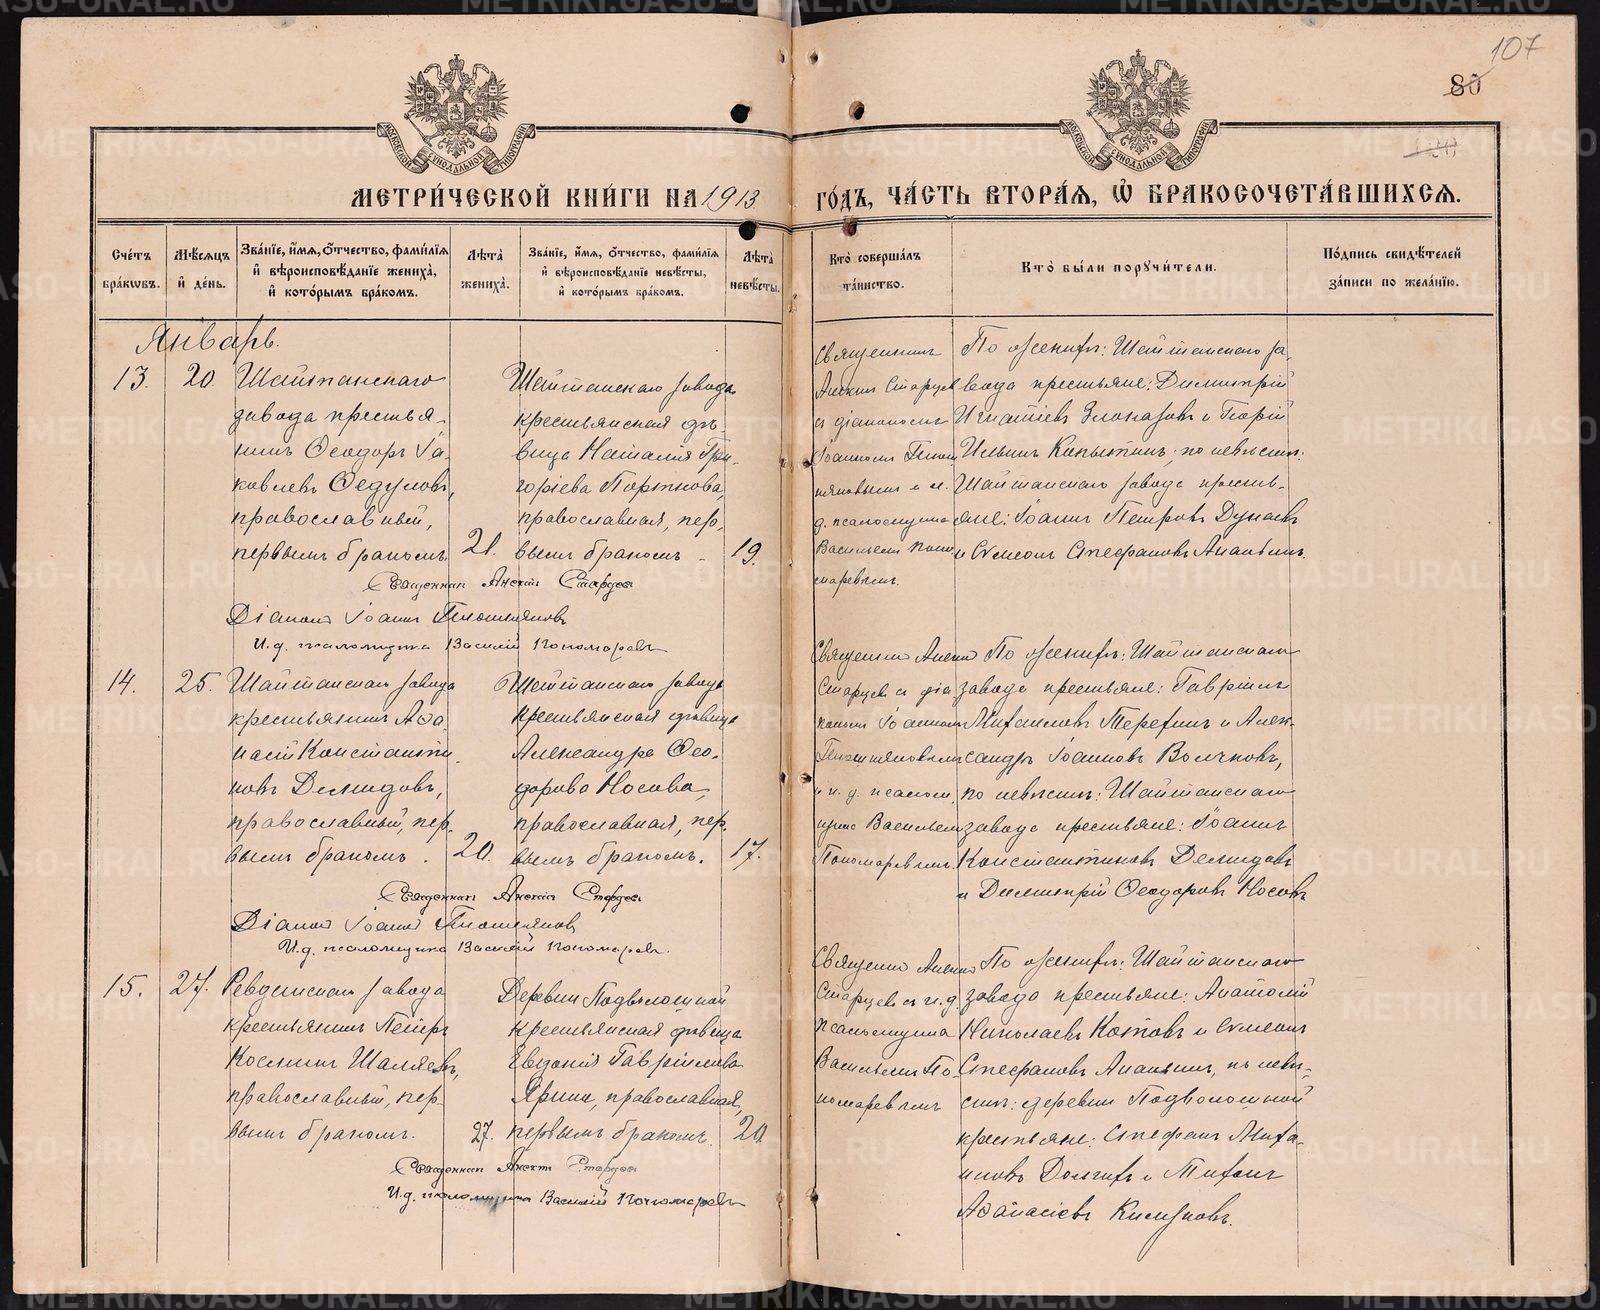 107
80
МЕТРИ́ЧЕСКОЙ КНИ́ГИ НА 1913 ГО́ДЪ, ЧА́СТЬ ВТОРА́Ѧ, Ѡ БРАКОСОЧЕТА́ВШИХСѦ.
Сче́тъ бра́кѡвъ.
Мѣ́сѧцъ и҆ де́нь.
Зва́нїе, и҆́мѧ, ѻ҆́тчество, фами́лїѧ
и҆ вѣроисповѣ́данїе жениха̀,
и҆ кото́рымъ бра́комъ.
Лѣ́та̀ жениха̀.
Зва́нїе, и҆́мѧ, ѻ҆́тчество, фами́лїѧ
и҆ вѣроисповѣ́данїе невѣ́сты,
и҆ кото́рымъ бра́комъ.
Лѣ́та̀ невѣ́сты.
Кто̀ соверша́лъ
та́инство.
Кто̀ бы́ли порꙋчи́тели.
По́дпись свидѣ́телей
за́писи по жела́нїю.
Январь.
13.
20
Шайтанскаго
завода крестья-
нинъ Ѳеодоръ Іа-
ковлевъ Ѳедуловъ,
православный,
первымъ бракомъ.
21.
Шайтанскаго завода
крестьянская дѣ-
вица Наталія Гри-
горіева Портнова,
православная, пер-
вымъ бракомъ
19.
Священникъ
Алексій Старцев
съ діакономъ
Іоанномъ
и и.
д. псаломщика
Василіемъ Поно-
маревымъ.
По женихѣ: Шайтанскаго за-
вода крестьяне: Димитрій
Игнатіевъ Злоказовъ и Георгій
Ильинъ Копытинъ; по невѣстѣ:
Шайтанскаго завода кресть-
яне: Іоаннъ Петровъ Дунаевъ
и Сѵмеонъ Стефановъ Ананьинъ.
Священникъ Алексій Старцев
Діаконъ Іоаннъ
И. д. псаломщика Василій Пономаревъ
14.
25.
Шайтанскаго завода
крестьянинъ Аѳа-
насій Константи-
новъ Демидовъ,
православный, пер-
вымъ бракомъ.
20.
Шайтанскаго завода
крестьянская дѣвица
Александра Ѳео-
дорова Носова,
православная, пер-
вымъ бракомъ.
17.
Священникъ Алексій
Старцевъ съ діа-
кономъ Іоанномъ
и и. д. псалом-
щика Василіемъ
Пономаревымъ.
По женихѣ: Шайтанскаго
завода крестьяне: Гавріилъ
Михаиловъ Терехинъ и Алек-
сандръ Іоанновъ Волчковъ,
по невѣстѣ: Шайтанскаго
завода крестьяне: Іоаннъ
Константиновъ Демидовъ
и Димитрій Ѳеодоровъ Носовъ
Священникъ Алексій Старцев
Діаконъ Іоаннъ
И. д. псаломщика Василій Пономаревъ.
15.
27.
Ревдинскаго завода
крестьянинъ Петръ
Косминъ Шаляевъ,
православный, пер-
вымъ бракомъ.
27.
Деревни Подволошной
крестьянская дѣвица
Евдокія Гавріилова
Ярина, православная,
первымъ бракомъ.
20
Священникъ Алексій
Старцевъ съ и. д.
псаломщика
Василіемъ По-
номаревымъ
По женихѣ: Шайтанскаго
завода крестьяне: Анатолій
Николаевъ Котовъ и Сѵмеонъ
Стефановъ Ананьинъ, по невѣ-
стѣ: деревни Подволошной
крестьяне: Стефанъ Миха-
иловъ Долгихъ и Тихонъ
Аѳанасіевъ
Священникъ Алексій Старцев
И. д. псаломщика Василій Пономаревъ
METRIKI.GASO-URAL.RU